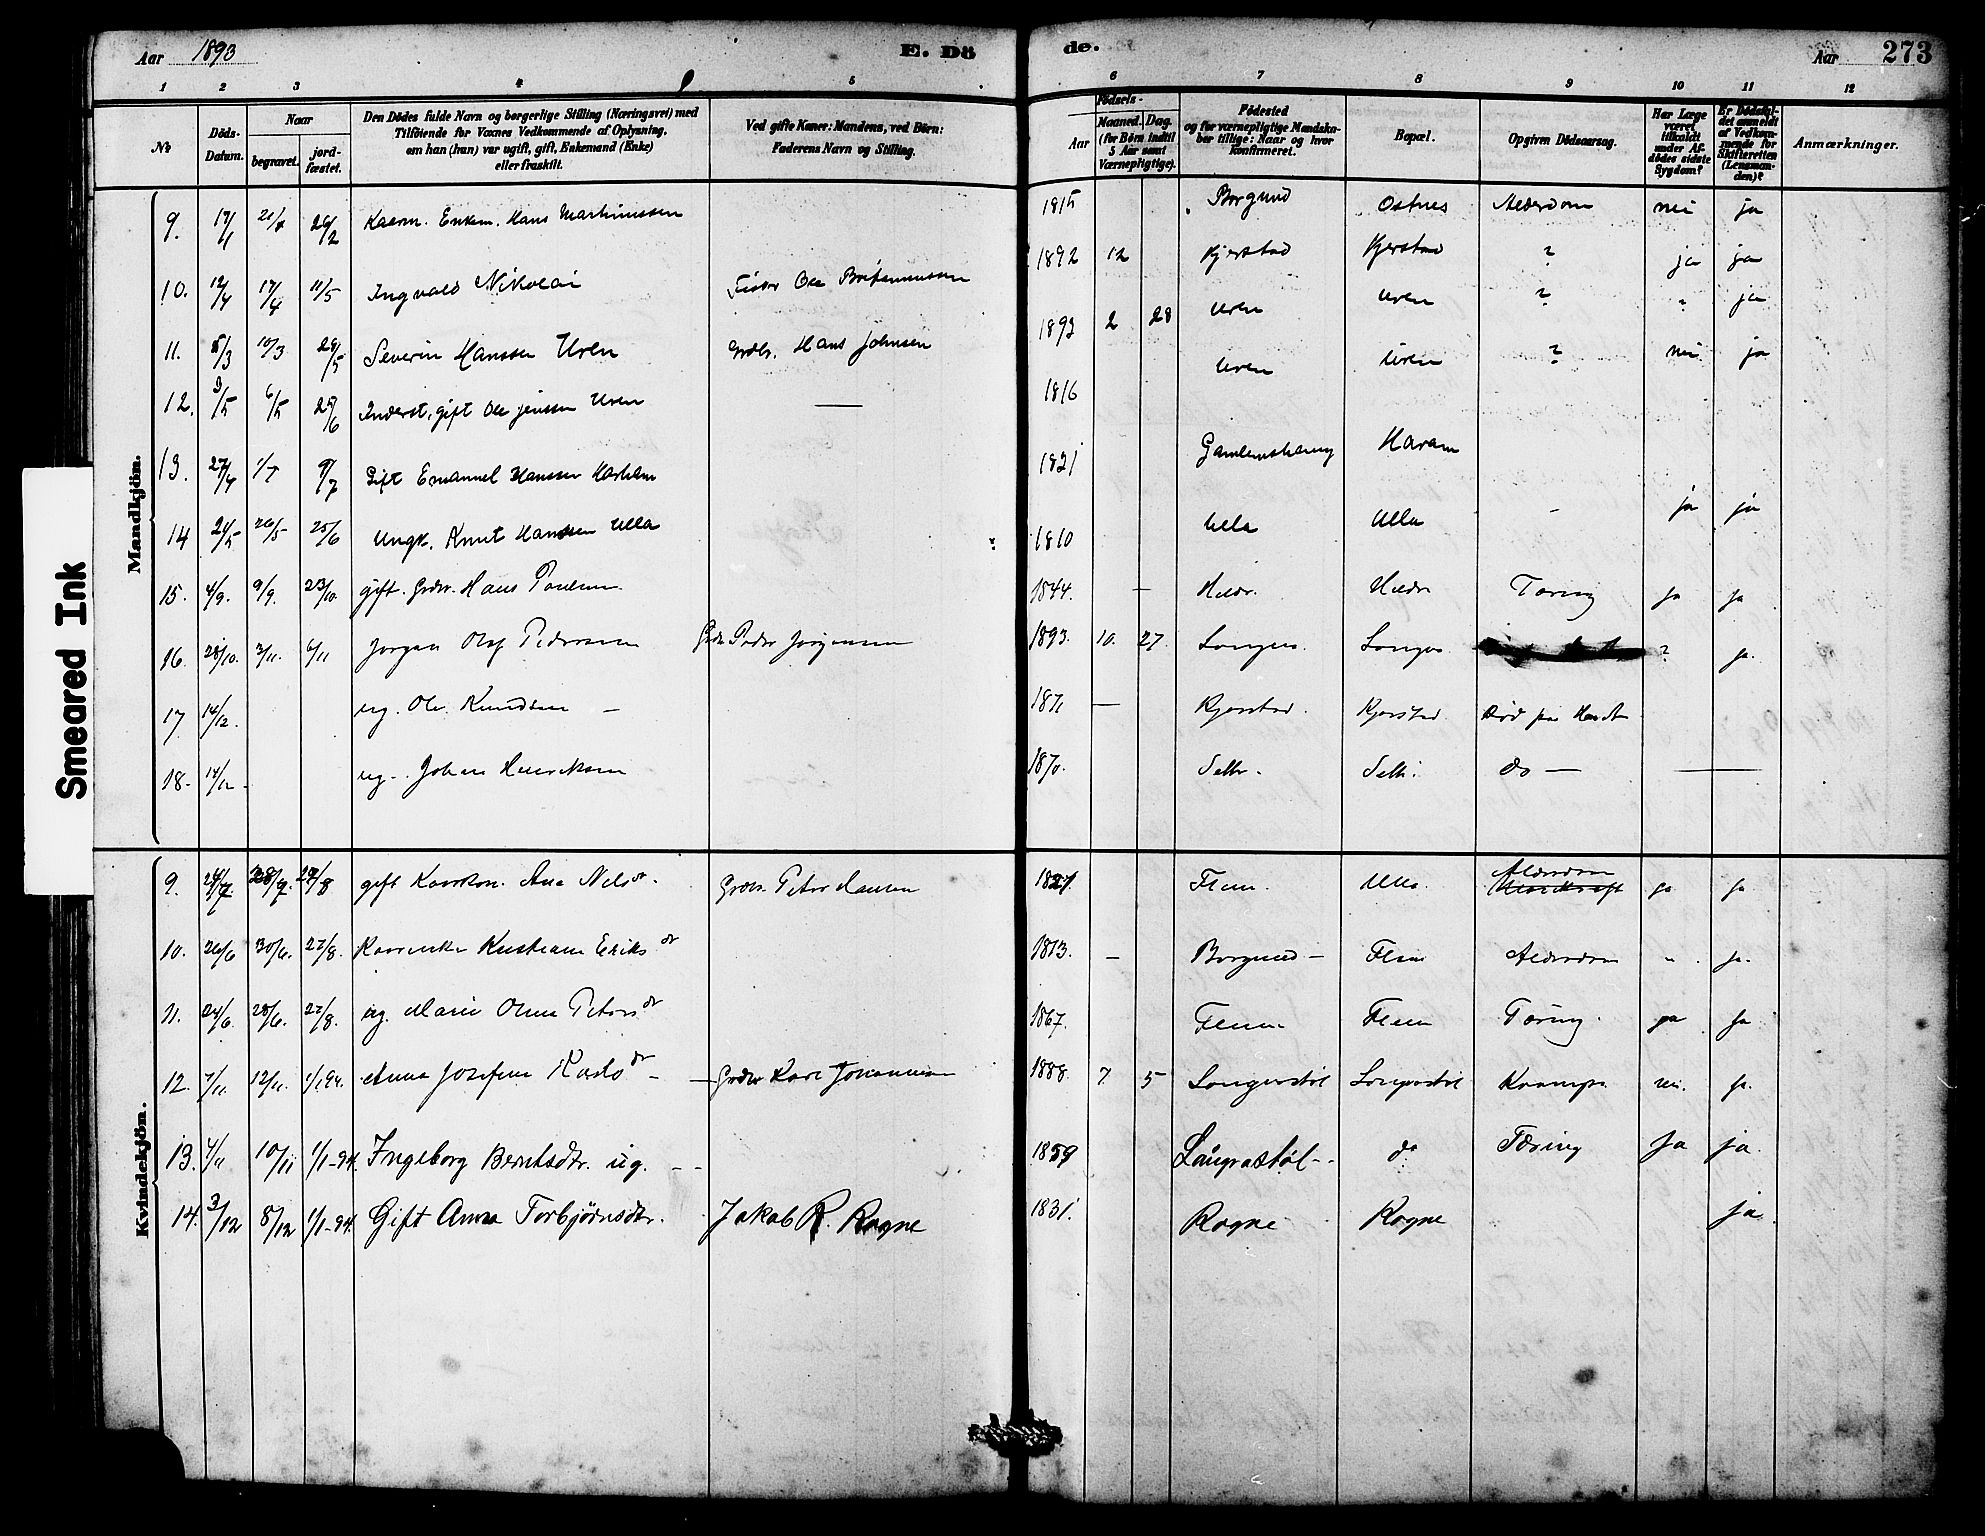 Aar 1893
E. Dö
de.
Aar
273
1 2 3 4 5 6 7 8 9 10 11 12
No
Döds-Datum.
Naar
begravet.
jord-fæstet.
Den Dödes fulde Navn og borgerlige Stilling (Næringsvei) med
Tilföiende for Voxnes Vedkommende af Oplysning,
om han (hun) var ugift, gift, Enkemand (Enke)
eller fraskilt.
Ved gifte Koner: Mandens, ved Börn:
Faderens Navn og Stilling.
Födsels-
Aar
Maaned. Dag.
(for Börn indtil
5 Aar samt
Værnepligtige).
Födested
og for værnepligtige Mandska-
ber tillige: Naar og hvor
konfirmeret.
Bopæl.
Opgiven Dödsaarsag.
Har Læge
været
tilkaldt
under Af-
dödes sidste
Sygdom?
Er Dödsfal-
det anmeldt
af Vedkom-
mende for
Skifteretten
(Lensman-
den)?
Anmærkninger.
Mandkjön.
9. 17/1 21/1 26/2 Kaarm. Enkem. Hans Martinussen 1815 Borgund Ostnes Alderdom nei ja
10. 12/4 17/4 11/5 Ingvald Nikolai 1892 12 Kjerstad Kjerstad ? ja ja
11. 5/3 10/3 28/5 Severin Hanssen Uren Grdbr. Hans Johnsen 1893 2 28 Uren Uren ? ja
12. 3/5 6/5 25/6 Inderst, gift Ole Jenssen Uren — 1816 Uren Uren ? nei ja
13. 27/4 9/7 Gift Emanuel Hanssen 1821 Haram
14 21/5 26/5 25/6 Ungk. Knut Hanssen Ulla 1810 Ulla Ulla - ja ja
15. 4/9. 9/9. 23/10. gift. Grdbr. Hans Paulsen 1844. — Hildr. Hildr Tæring ja ja
16. 28/10. 2/11. 6/11 Jørgen Olaf Pedersen Grdbr Peder Jörgensen 1893. 10. 27. Longva. Longva ? ja
17 14/12. ug. Ole Knudsen — 1871 — Kjerstad. Kjerstad. Död paa Havet
18. 14/12 - ug. Johan Henriksen 1870. do —
Kvindekjön.
9. 28/7. 27/8 gift Kaarkon. Ane Nilsdr. Grdbr. Peter Hansen 1827. Flem. Ulla. Alderdom ja ja
10. 26/6 30/6. 27/8. Kaarenke Kristiane Eriksdr 1813. — Borgund — Flem Alderdom " ja.
11. 24/6. 28/6. 27/8. ug. Marie Oline Petersdr 1867. Flem Flem Tæring. ja ja
12. 7/11 12/11. 1/1 94. Anna Josefine Karlsdr — Grdbr Karl Johannesen 1888. 7. 5 Longvastöl Longvastöl Krampe nei. ja.
13. 4/11 10/11 1/1-94. Ingeborg Berntsdtr. ug. - - 1859 Laugvastöl - do Tæring Ja ja.
14. 3/12 8/12 1/1-94 Gift Anna Torbjørnsdtr. Jakob R. Rogne 1831. Rogne Rogne ja
Smeared Ink